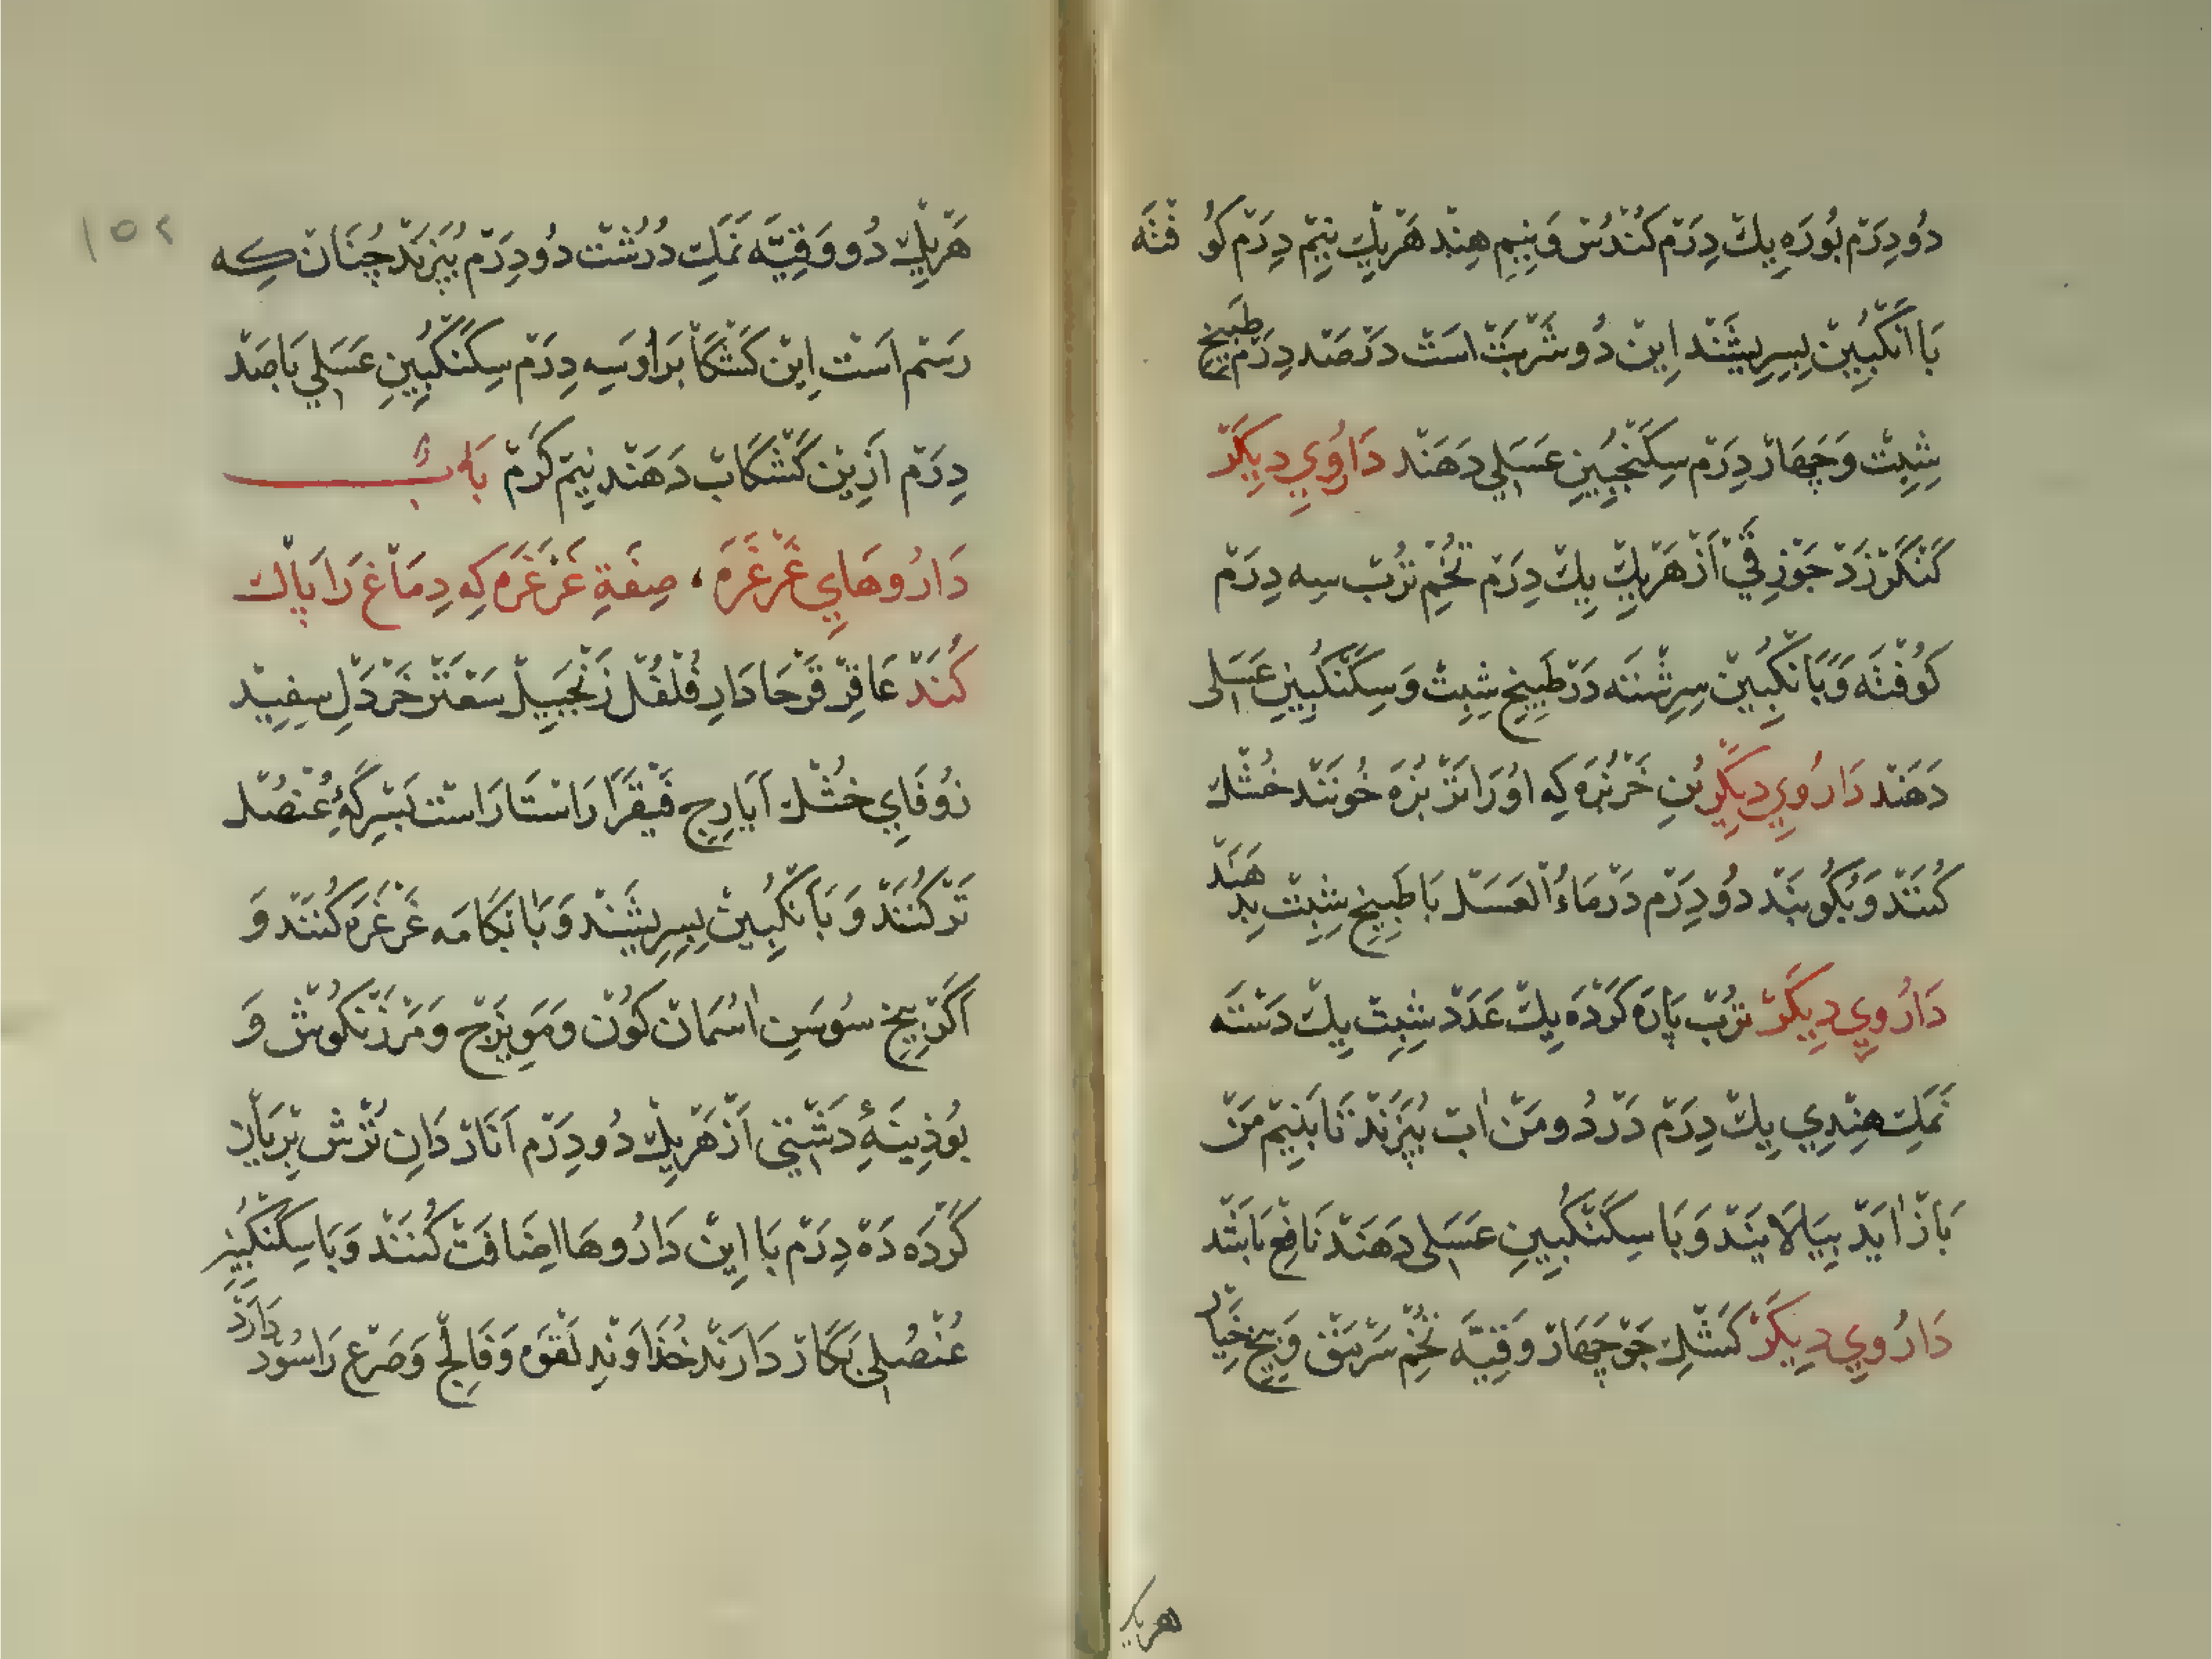 دُو دِرَمْ بُورَه يِكْ دِرَمْ كُنْدُسْ وَ نِيم هِنْد هَرْيِكْ نِيمْ دِرَمْ كُو فْتَه
بَا اَنْگبِينْ بِسِرِيشَنْد اِينْ دُو شَرْبَتْ اسَتْ دَرْ صَد دِرَمْ طَبِيخِ
شِبِتْ وَ چَهَارْ دِرَمْ سِكَنْجُبِينِ عَسَلِي دَهَنْد دَاروُيِ دِيگَرْ
كَنْگَرْزَدْ جَوْزِ قَيْ اَزْ هَرْيِكْ يِكْ دِرَمْ تُخْمِ تُرُبْ سِه دِرَمْ
كُوفْتَه وَ بَانْگبِينْ سِرِشْتَه دَرْ طَبِيخِ شِبِتْ وَ سِكَنْگُبِينِ عَسَلى
دَهَنْد دَارُويِ دِيگَرْ بُنِ خَرْبُزَه كِه اوُ رَا تَرْ بُزَه خُونَنْد خُشْك
كُنَنْد وَ بُكُوبَنْد دُو دِرَمْ دَرْ مَاءُ الْعَسَلْ بَا طَبِيخِ شِبِتْ بِدِهَنْد
دَارُويِ دِيگَرْ تُرُبْ پَارَه كَرْدَه يِكْ عَدَدْ شِبِتْ يِكْ دَسْتَه
نَمَكِ هِنْدِي يِكْ دِرَمْ دَرْ دُو مَنْ ابْ بُپَزَنْدْ تَا بَنِيمْ مَنْ
بَازْ ايَدْ بِپَالَايَنْد وَ بَا سِكَنْگُبِينِ عَسَلى دَهَنْد نَافِعْ بَاشَد
دَارُويِ دِيگَرْ كَشْكِ جَوْ چَهَارْ وَقِيَّه تُخْمِ سَرْمَقْ وَ بِيخِ خِيَارْ
هريك
هَرْيِكْ دُو وَقِيَّه نَمَكِ دُرُشْتْ دُو دِرَمْ بُپَزَنْدْ چُنَانْ كِه
رَسْم اسَتْ اِينْ كَشْكَابْ رَا وَ سِه دِرَمْ سِكَنْگُبِينِ عَسَلِي بَا صَدْ
دِرَمْ ازِينْ كَشْكَابْ دَهَنْد نِيمْ كَرْمْ بَابُ
دَارُوهَايِ غَرْغَرَه صِفَةِ غَرْغَرَه كِه دِمَاغْ رَا پَاكْ
كُنَدْ عَاقِرْ قَرْحَا دَارِ فُلْفُلْ زَنْجَبِيلْ سَعْتَرْ خَرْدَلِ سِفِيدْ
زُوفَايِ خُشْك اَيَارِجِ فَيْقَرَا رَاسْتَا رَاسْت بَسِرِكَهٔ عُنْصُلْ
تَرْ كُنَنَدْ وَ بَانْگبِينْ بِسِرِيشَنْد وَ بَا بَكَامَه غَرْغَرَه كُنَنْد وَ
اَگَرْ بِيخِ سُوسَنِ اسْمَانْ كُونْ وَ مَوِيزَجْ وَ مَرْزَنْكُوشْ وَ
بُوذِينَهٔ دَشْتِي اَزْ هَرْيِكْ دُو دِرَمْ اَنَارْ دَانِ تُرْشِ بِرْيَانْ
كَرْدَه دَهْ دِرَمْ بَا اِينْ دَارُوهَا اضَافَتْ كُنَنْد وَ بَا سِكَنْگُبِينِ
عُنْصُلِي بَكَارْ دَارَنْد خُذَاوَنْدِ لَقْوَه وَ فَالِجْ وَ صَرْع رَا سُوْد دَارَدْ
۱۵۲